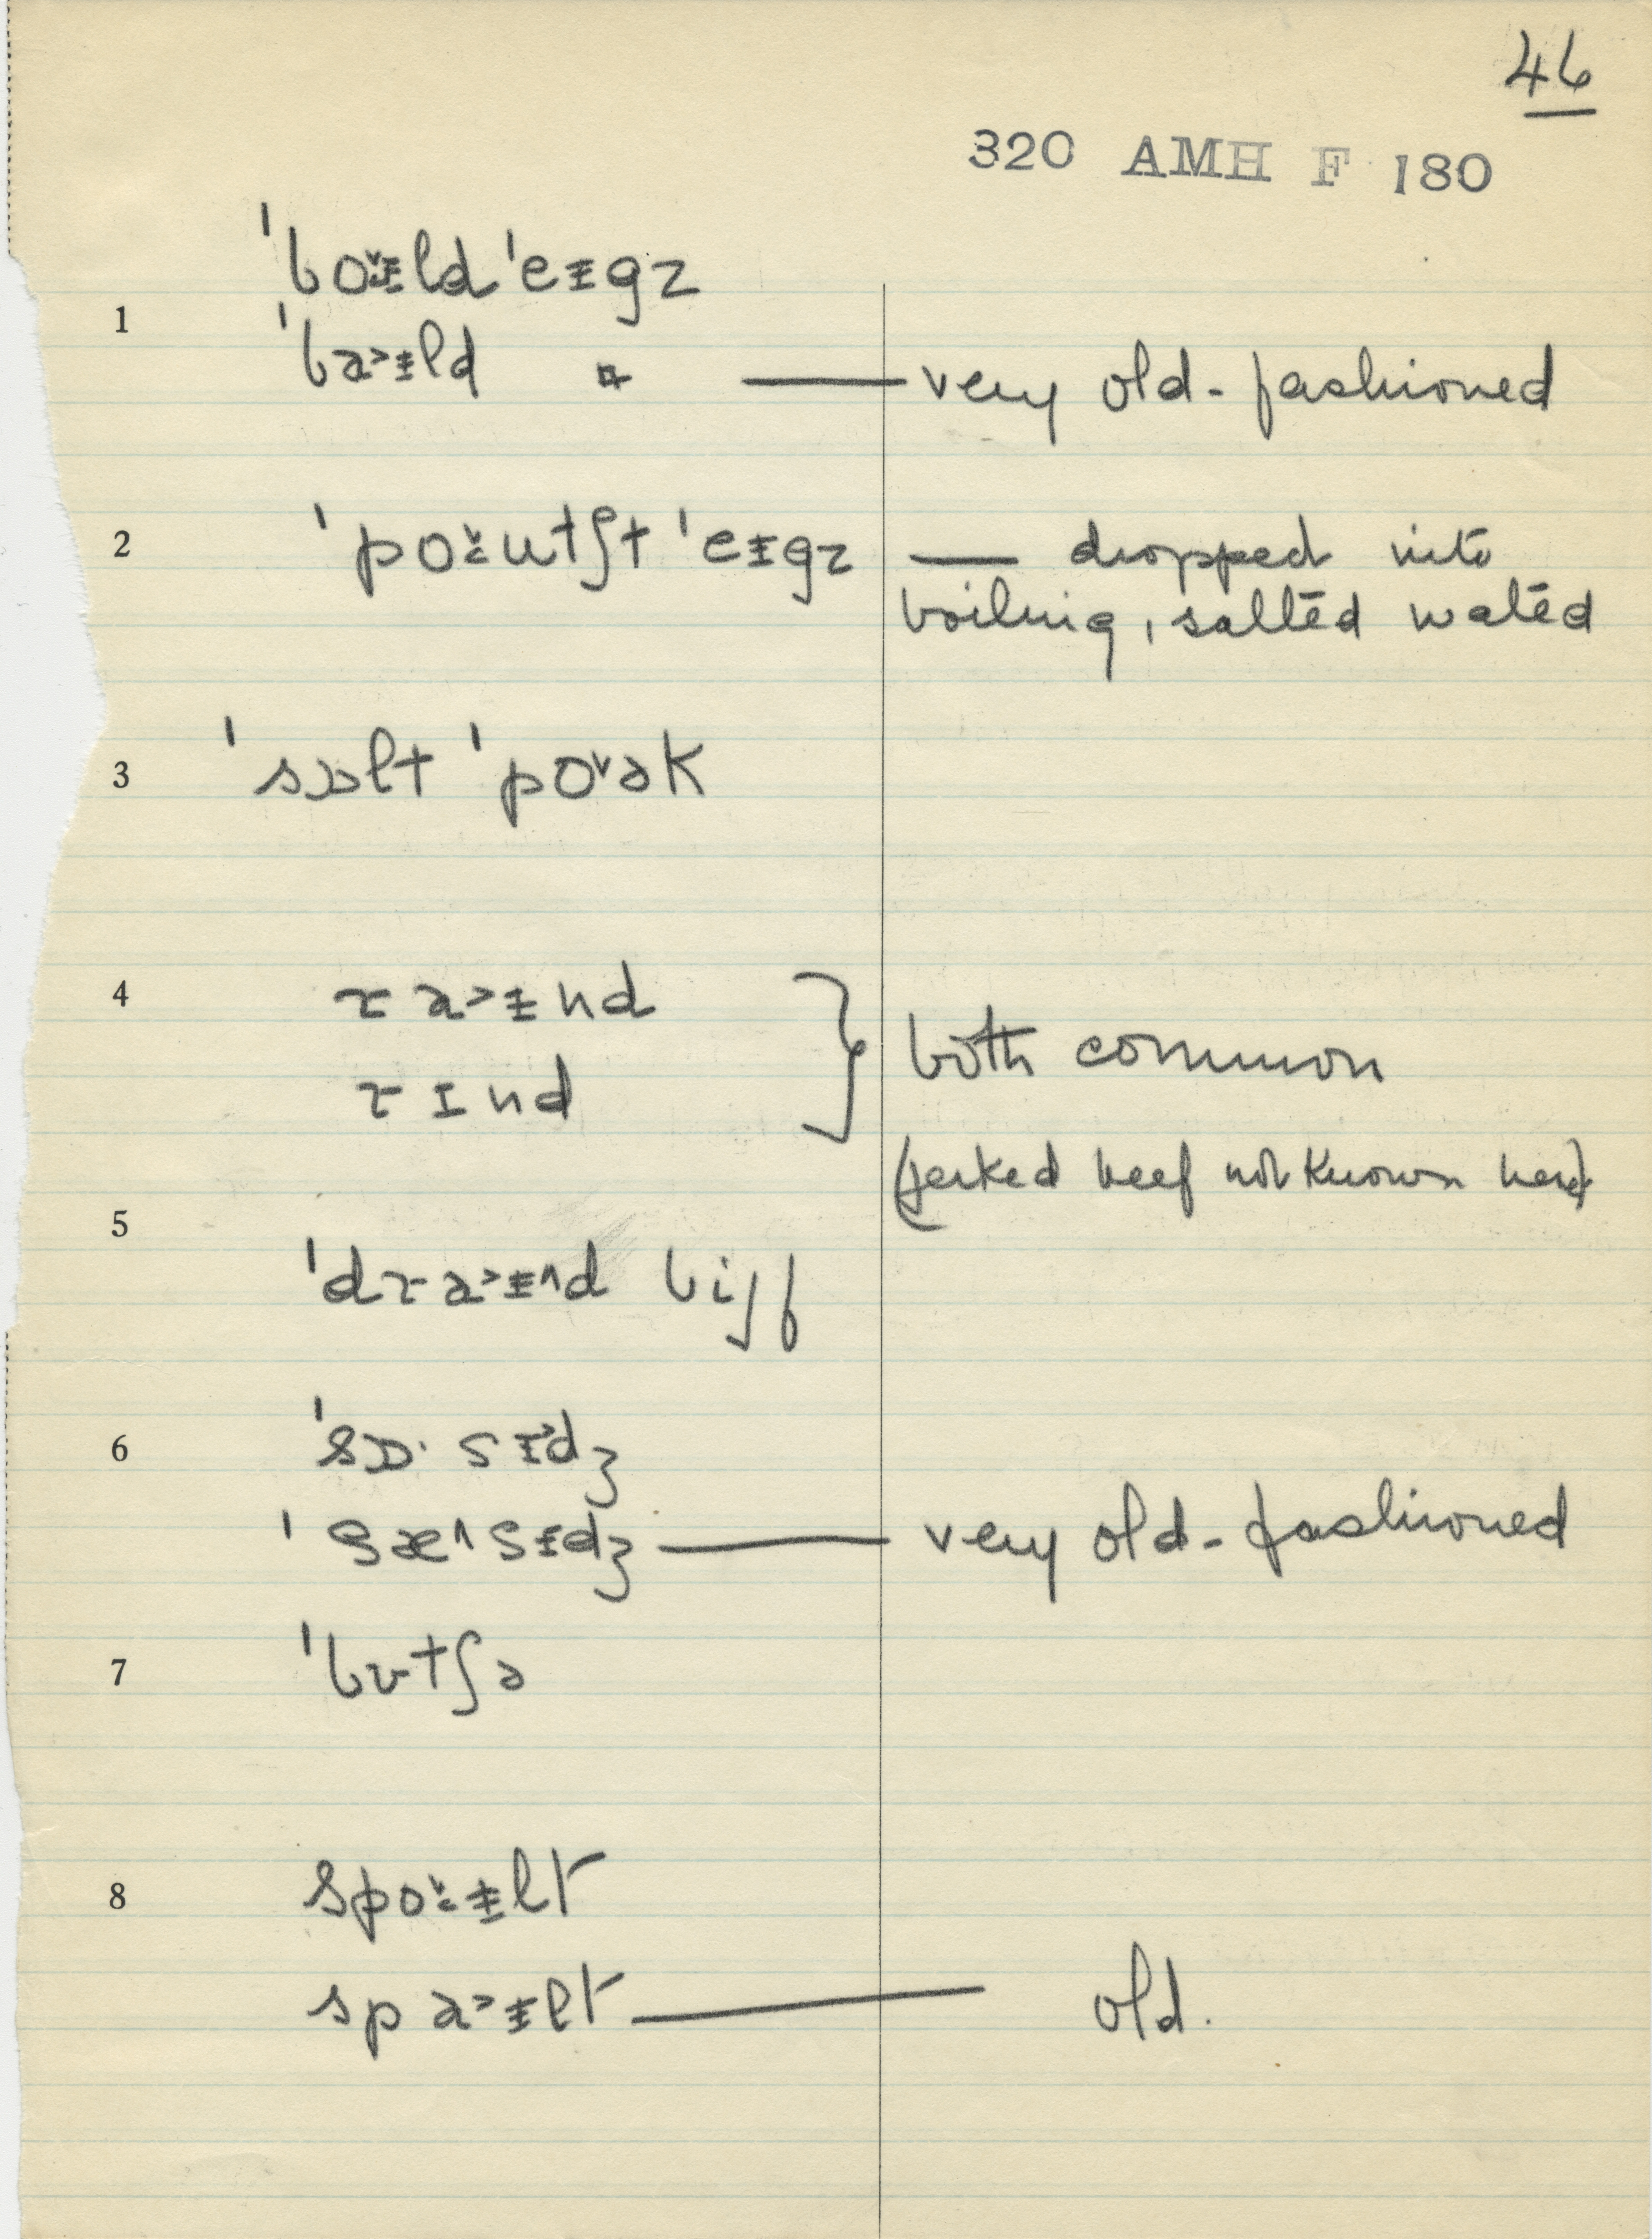 46
320 AMH F 180
ˈbo˅ɨld ˈeɪgz
1
ˈba˃ɨld " — very old-fashioned
2 ˈpo˅ʉtʃt ˈeɪgz — dropped into
boiling, salted wated
3 ˈsɒlt ˈpo˅ək
4 ɹa˃ɨnd } both common
ɹɪnd
(jerked beef not known here)
5
ˈdɹa˃ɨ^d bijf
6 ˈsɒ·sɪdʒ
ˈsæ^sɪdʒ — very old-fashioned
7 ˈbʊtʃə
8 spo˅ɨlt
spa˃ɨlt — old.